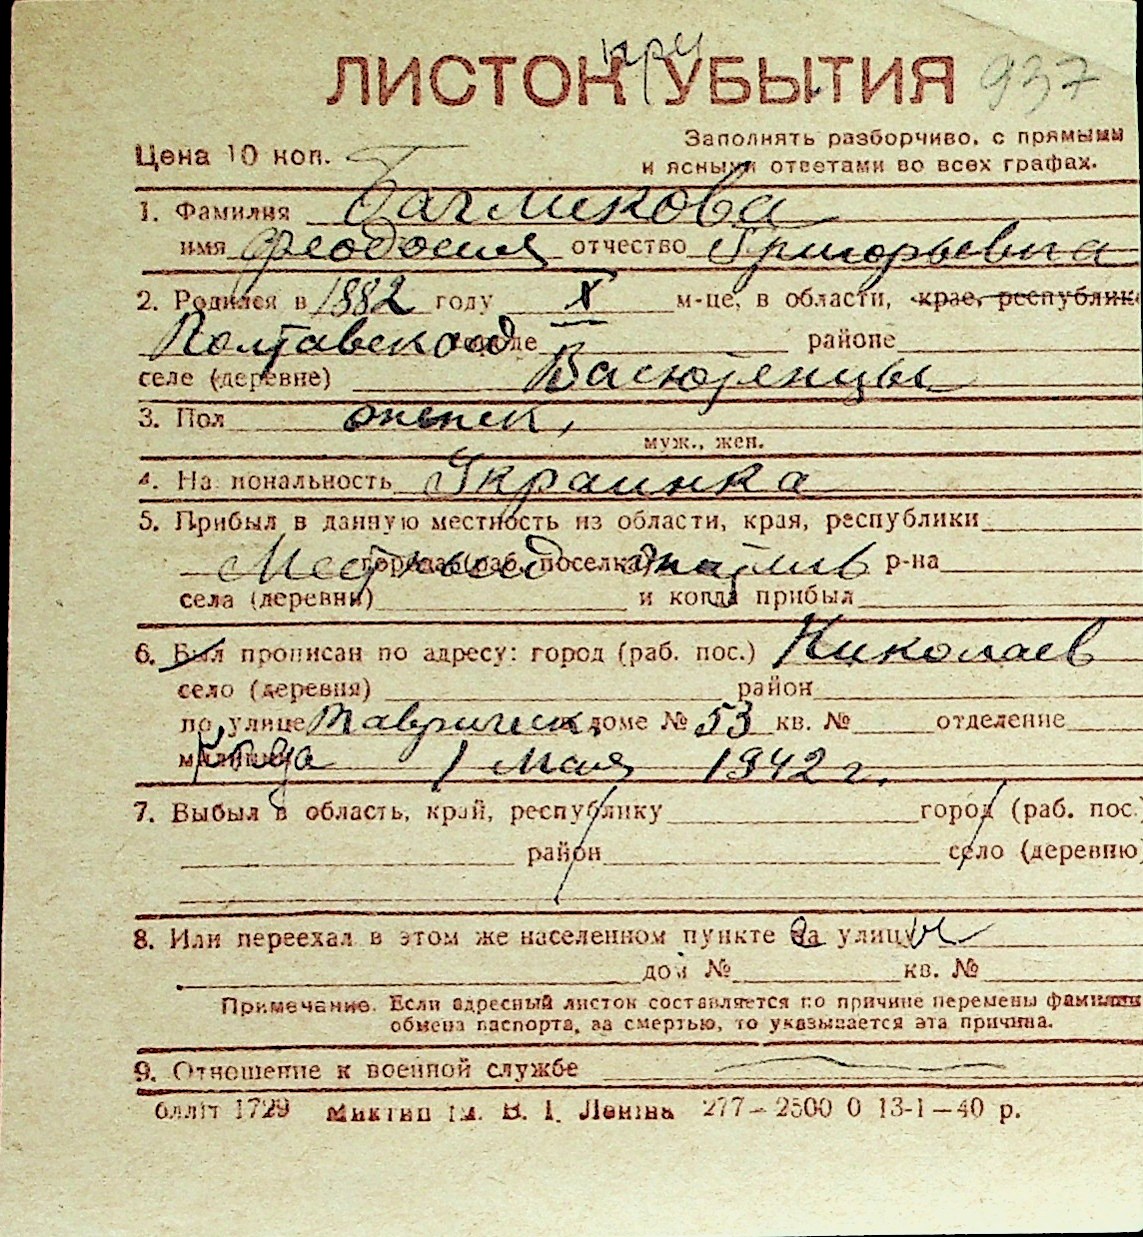 ЛИСТОК УБЫТИЯ 937
Заполнять разборчиво, с прямыми
Цена 10 коп. и ясными ответами во всех графах.
1. Фамилия Багликова
имя Феодосия отчество Григорьевна
2. Родился в 1882 году X м-це, в области, крае, республике
Полтавской районе
селе (деревне) Васютенцы
3. Пол женск.
муж., жен.
4. Национальность Украинка
5. Прибыл в данную местность из области, края, республики
города (раб. поселка) р-на
села (деревни) и когда прибыл
6. Был прописан по адресу: город (раб. пос.) Николаев
село (деревня) район
по улице Тавричиск. доме № 53 кв. № отделение
милиции 1 мая 1942 г.
7. Выбыл в область, край, республику город (раб. пос.)
район село (деревню)
8. Или переехал в этом же населенном пункте на улицу
дом № кв. №
Примечание. Если адресный листок составляется по причине перемены фамилии
обмена паспорта, за смертью, то указывается эта причина.
9. Отношение к военной службе
блліт 1729 Микгип ім. В. І. Леніна 277—2500 0 13-1—40 р.